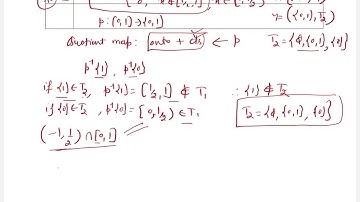 0, x∉[½,1] x∈[½,
p: [0,1] → {0,1} Y=({0,1}, T₂)
Quotient map: (onto + cts) ← p T₂={ϕ,{0,1},{0}}
p⁻¹{1}, p⁻¹{0}
if {1}∈T₂, p⁻¹{1} = [½,1] ∉ T₁ ∴ {1} ∉ T₂
if {0}∈T₂, p⁻¹{0} = [0,½) ∈ T₁ T₂={ϕ,{0,1},{0}}
(-1,½) ∩ [0,1]